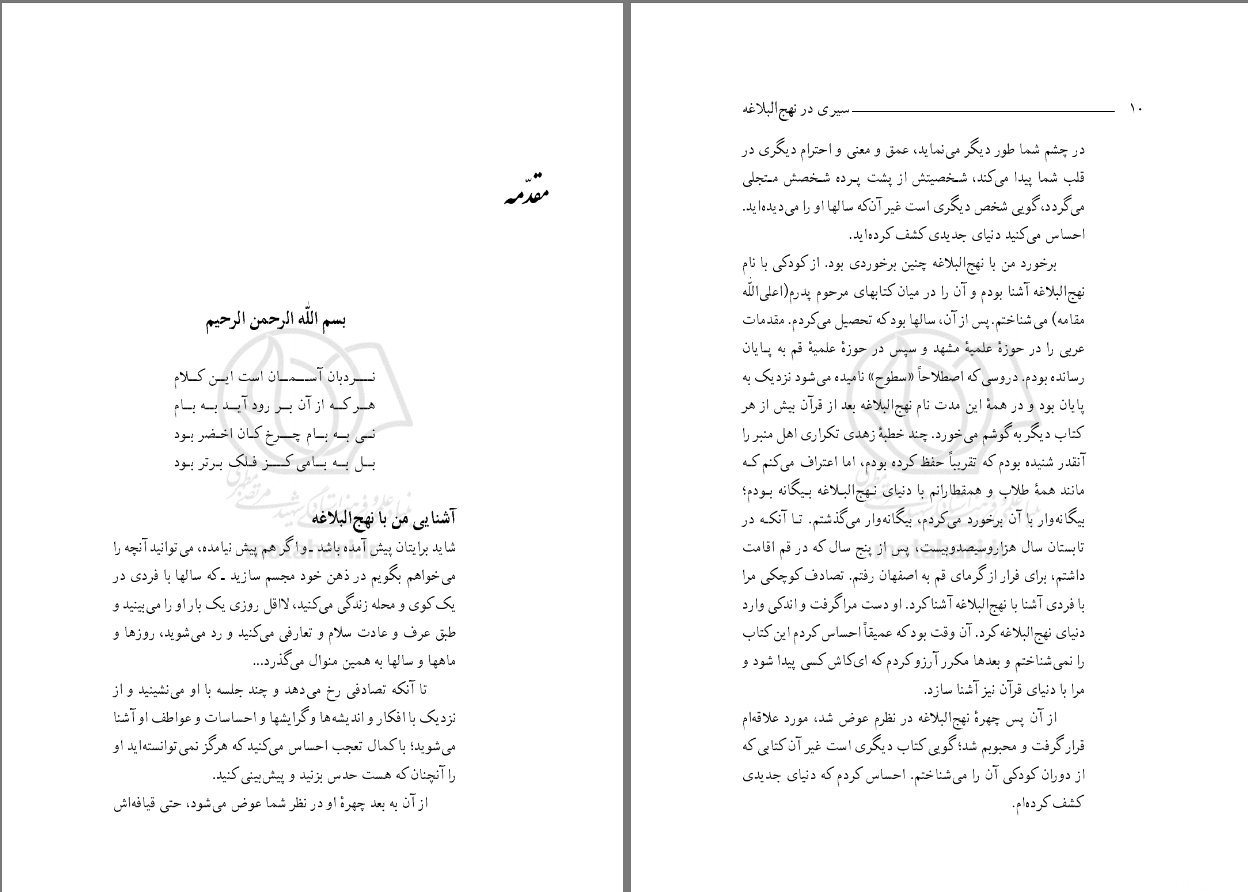 مقدّمه
بسم الله الرحمن الرحیم
نردبان آسمان است این کلام
هر که از آن بر رود آید به بام
نی به بام چرخ کان اخضر بود
بل به بامی کز فلک برتر بود
آشنایی من با نهج‌البلاغه
شاید برایتان پیش آمده باشد ـ و اگر هم پیش نیامده، می‌توانید آنچه را
می‌خواهم بگویم در ذهن خود مجسم سازید ـ که سالها با فردی در
یک کوی و محله زندگی می‌کنید، لااقل روزی یک بار او را می‌بینید و
طبق عرف و عادت سلام و تعارفی می‌کنید و رد می‌شوید، روزها و
ماهها و سالها به همین منوال می‌گذرد...
تا آنکه تصادفی رخ می‌دهد و چند جلسه با او می‌نشینید و از
نزدیک با افکار و اندیشه‌ها و گرایشها و احساسات و عواطف او آشنا
می‌شوید؛ با کمال تعجب احساس می‌کنید که هرگز نمی‌توانسته‌اید او
را آنچنان که هست حدس بزنید و پیش‌بینی کنید.
از آن به بعد چهرهٔ او در نظر شما عوض می‌شود، حتی قیافه‌اش
۱۰ سیری در نهج‌البلاغه
در چشم شما طور دیگر می‌نماید، عمق و معنی و احترام دیگری در
قلب شما پیدا می‌کند، شخصیتش از پشت پرده شخصش متجلی
می‌گردد، گویی شخص دیگری است غیر آن‌که سالها او را می‌دیده‌اید.
احساس می‌کنید دنیای جدیدی کشف کرده‌اید.
برخورد من با نهج‌البلاغه چنین برخوردی بود. از کودکی با نام
نهج‌البلاغه آشنا بودم و آن را در میان کتابهای مرحوم پدرم (اعلی‌الله
مقامه) می‌شناختم. پس از آن، سالها بود که تحصیل می‌کردم. مقدمات
عربی را در حوزهٔ علمیهٔ مشهد و سپس در حوزهٔ علمیهٔ قم به پایان
رسانده بودم. دروسی که اصطلاحاً «سطوح» نامیده می‌شود نزدیک به
پایان بود و در همهٔ این مدت نام نهج‌البلاغه بعد از قرآن بیش از هر
کتاب دیگر به گوشم می‌خورد. چند خطبهٔ زهدی تکراری اهل منبر را
آنقدر شنیده بودم که تقریباً حفظ کرده بودم، اما اعتراف می‌کنم که
مانند همهٔ طلاب و همقطارانم با دنیای نهج‌البلاغه بیگانه بودم؛
بیگانه‌وار با آن برخورد می‌کردم، بیگانه‌وار می‌گذشتم. تا آنکه در
تابستان سال هزاروسیصدوبیست، پس از پنج سال که در قم اقامت
داشتم، برای فرار از گرمای قم به اصفهان رفتم. تصادف کوچکی مرا
با فردی آشنا با نهج‌البلاغه آشنا کرد. او دست مرا گرفت و اندکی وارد
دنیای نهج‌البلاغه کرد. آن وقت بود که عمیقاً احساس کردم این کتاب
را نمی‌شناختم و بعدها مکرر آرزو کردم که ای‌کاش کسی پیدا شود و
مرا با دنیای قرآن نیز آشنا سازد.
از آن پس چهرهٔ نهج‌البلاغه در نظرم عوض شد، مورد علاقه‌ام
قرار گرفت و محبوبم شد؛ گویی کتاب دیگری است غیر آن کتابی که
از دوران کودکی آن را می‌شناختم. احساس کردم که دنیای جدیدی
کشف کرده‌ام.